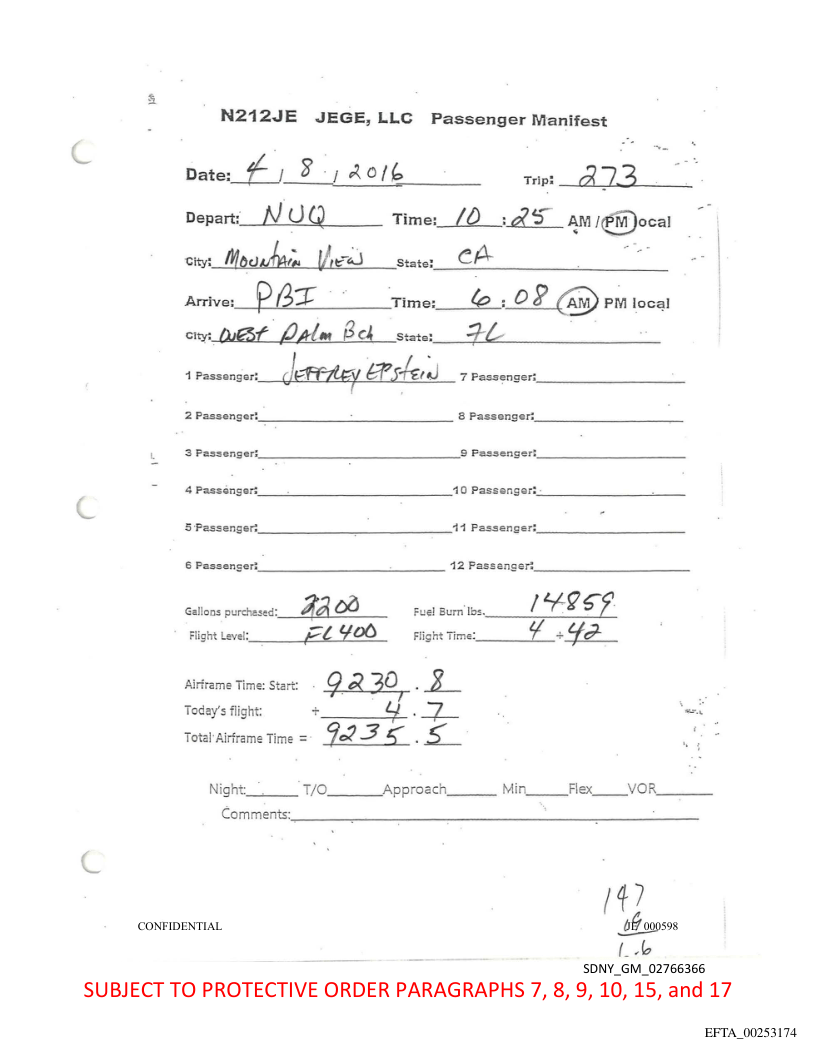 N212JE JEGE, LLC Passenger Manifest
Date: 4 / 8 / 2016 Trip: 273
Depart: NUQ Time: 10 : 25 AM / PM local
City: Mountain View State: CA
Arrive: PBI Time: 6 : 08 AM PM local
City: West Palm Bch State: FL
1 Passenger: Jeffrey Epstein 7 Passenger:
2 Passenger: 8 Passenger:
3 Passenger: 9 Passenger:
4 Passenger: 10 Passenger:
5 Passenger: 11 Passenger:
6 Passenger: 12 Passenger:
Gallons purchased: 2200 Fuel Burn lbs. 14859
Flight Level: FL400 Flight Time: 4 + 42
Airframe Time: Start: 9230 . 8
Today's flight: + 4 . 7
Total Airframe Time = 9235 . 5
Night: T/O Approach Min Flex VOR
Comments:
147
CONFIDENTIAL 000598
1.6
SDNY_GM_02766366
SUBJECT TO PROTECTIVE ORDER PARAGRAPHS 7, 8, 9, 10, 15, and 17
EFTA_00253174